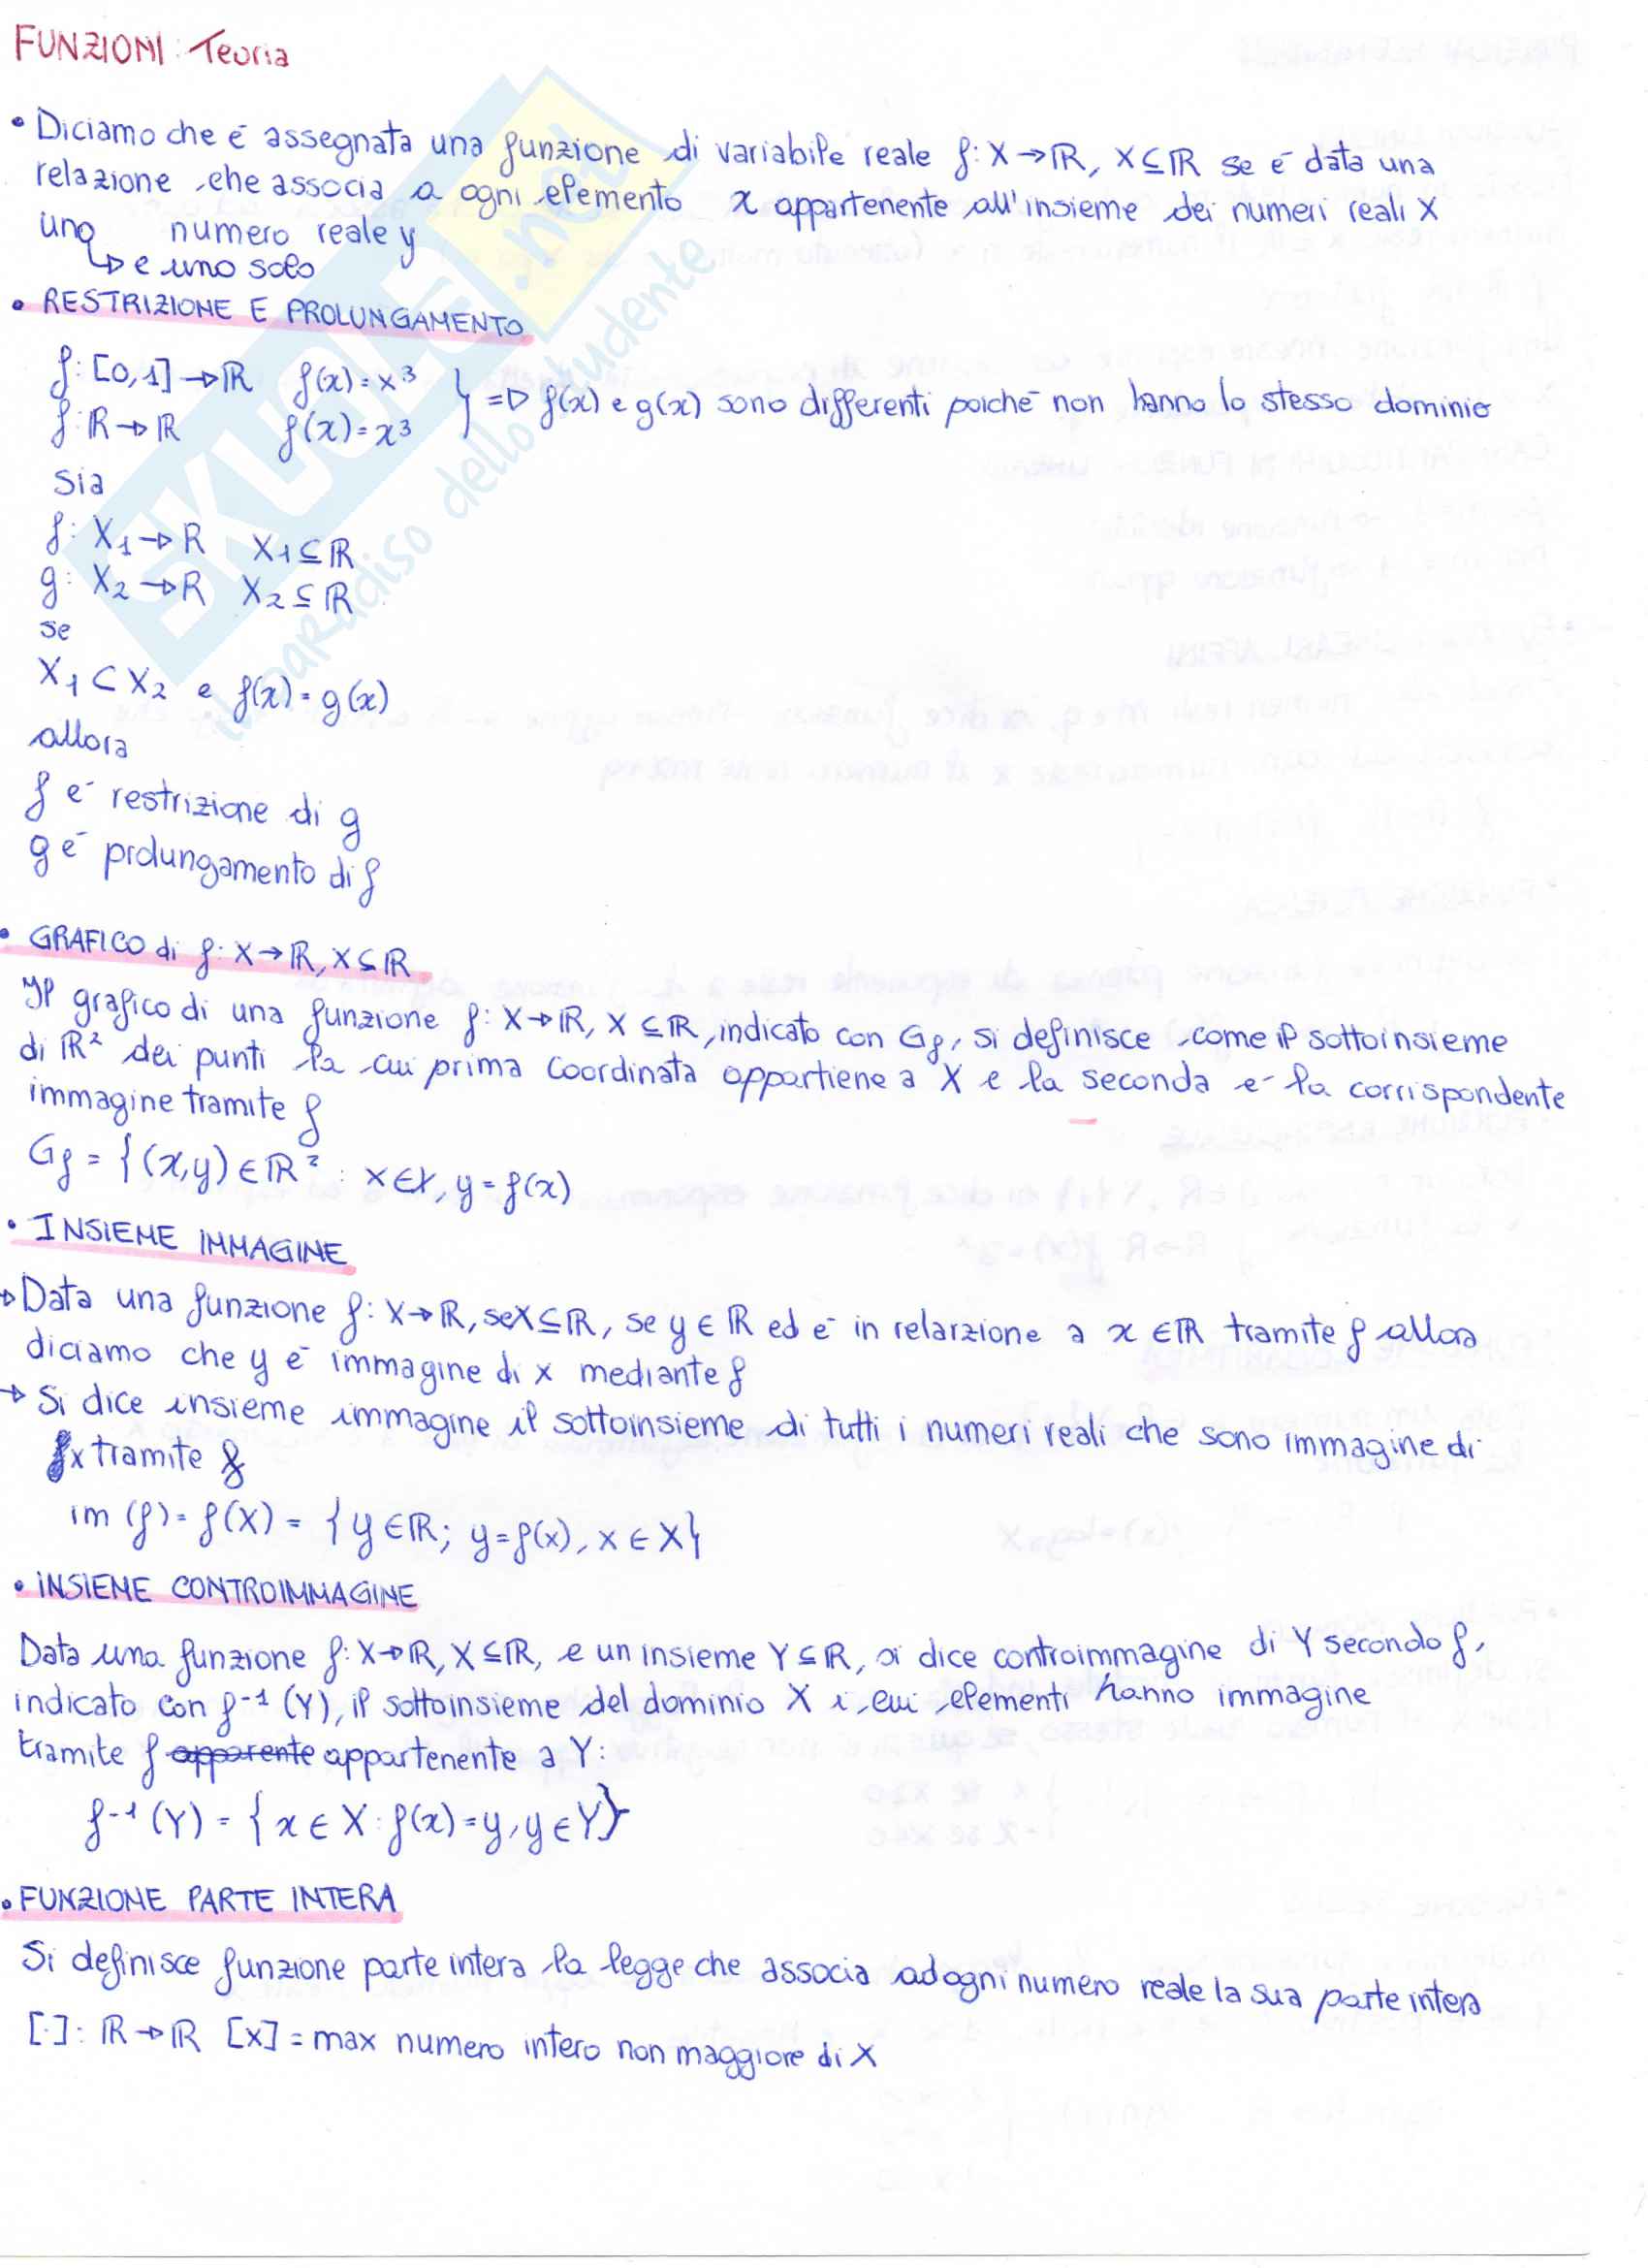 FUNZIONI: Teoria
• Diciamo che è assegnata una funzione di variabile reale f: X→ℝ, X⊆ℝ se è data una
relazione che associa a ogni elemento x appartenente all'insieme dei numeri reali X
uno numero reale y
↳ e uno solo
• RESTRIZIONE E PROLUNGAMENTO
f: [0,1]→ℝ f(x)=x³
f: ℝ→ℝ f(x)=x³ } => f(x) e g(x) sono differenti poiché non hanno lo stesso dominio
Sia
f: X₁→ℝ X₁⊆ℝ
g: X₂→ℝ X₂⊆ℝ
se
X₁⊂X₂ e f(x)=g(x)
allora
f è restrizione di g
g è prolungamento di f
• GRAFICO di f: X→ℝ, X⊆ℝ
Il grafico di una funzione f: X→ℝ, X⊆ℝ, indicato con Gf, si definisce come il sottoinsieme
di ℝ² dei punti la cui prima coordinata appartiene a X e la seconda è la corrispondente
immagine tramite f
Gf = {(x,y)∈ℝ² : x∈X, y=f(x)
• INSIEME IMMAGINE
→ Data una funzione f: X→ℝ, se X⊆ℝ, se y∈ℝ ed è in relarzione a x∈ℝ tramite f allora
diciamo che y è immagine di x mediante f
→ Si dice insieme immagine il sottoinsieme di tutti i numeri reali che sono immagine di
x tramite f
im (f)= f(X) = {y∈ℝ; y=f(x), x∈X}
• INSIEME CONTROIMMAGINE
Data una funzione f: X→ℝ, X⊆ℝ, e un insieme Y⊆ℝ, si dice controimmagine di Y secondo f,
indicato con f⁻¹(Y), il sottoinsieme del dominio X i cui elementi hanno immagine
tramite f apparente appartenente a Y:
f⁻¹(Y) = {x∈X : f(x)=y, y∈Y}
• FUNZIONE PARTE INTERA
Si definisce funzione parte intera la legge che associa ad ogni numero reale la sua parte intera
[·]: ℝ→ℝ [x] = max numero intero non maggiore di x
SKUOLA.net
il paradiso dello studente